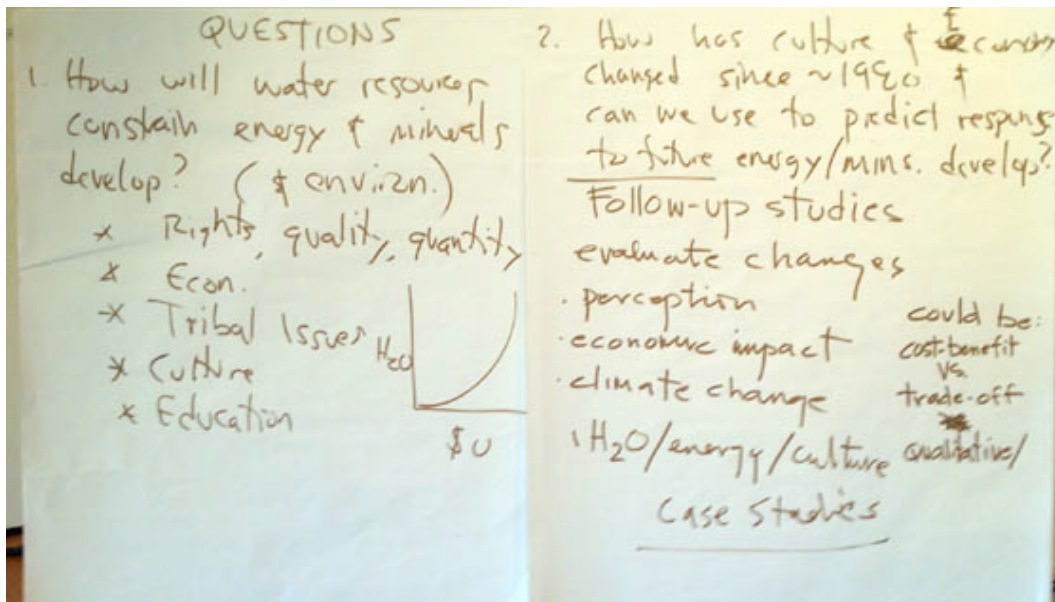 QUESTIONS
1. How will water resources
constrain energy & minerals
develop? (& environ.)
* Rights, quality, quantity
* Econ.
* Tribal Issues
* Culture
* Education
H2O
$U
2. How has culture & Econ
changed since ~1980 &
can we use to predict response
to future energy/mins. develop?
Follow-up studies
evaluate changes
· perception
· economic impact
· climate change
· H2O/energy/culture
could be:
cost-benefit
vs.
trade-off
qualitative/
Case Studies